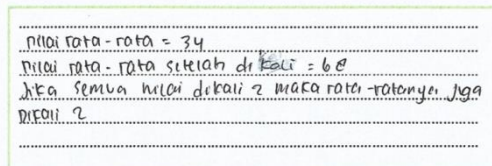 nilai rata-rata = 34
nilai rata-rata setelah di kali = 68
Jika semua nilai dikali 2 maka rata-ratanya juga
Dikali 2